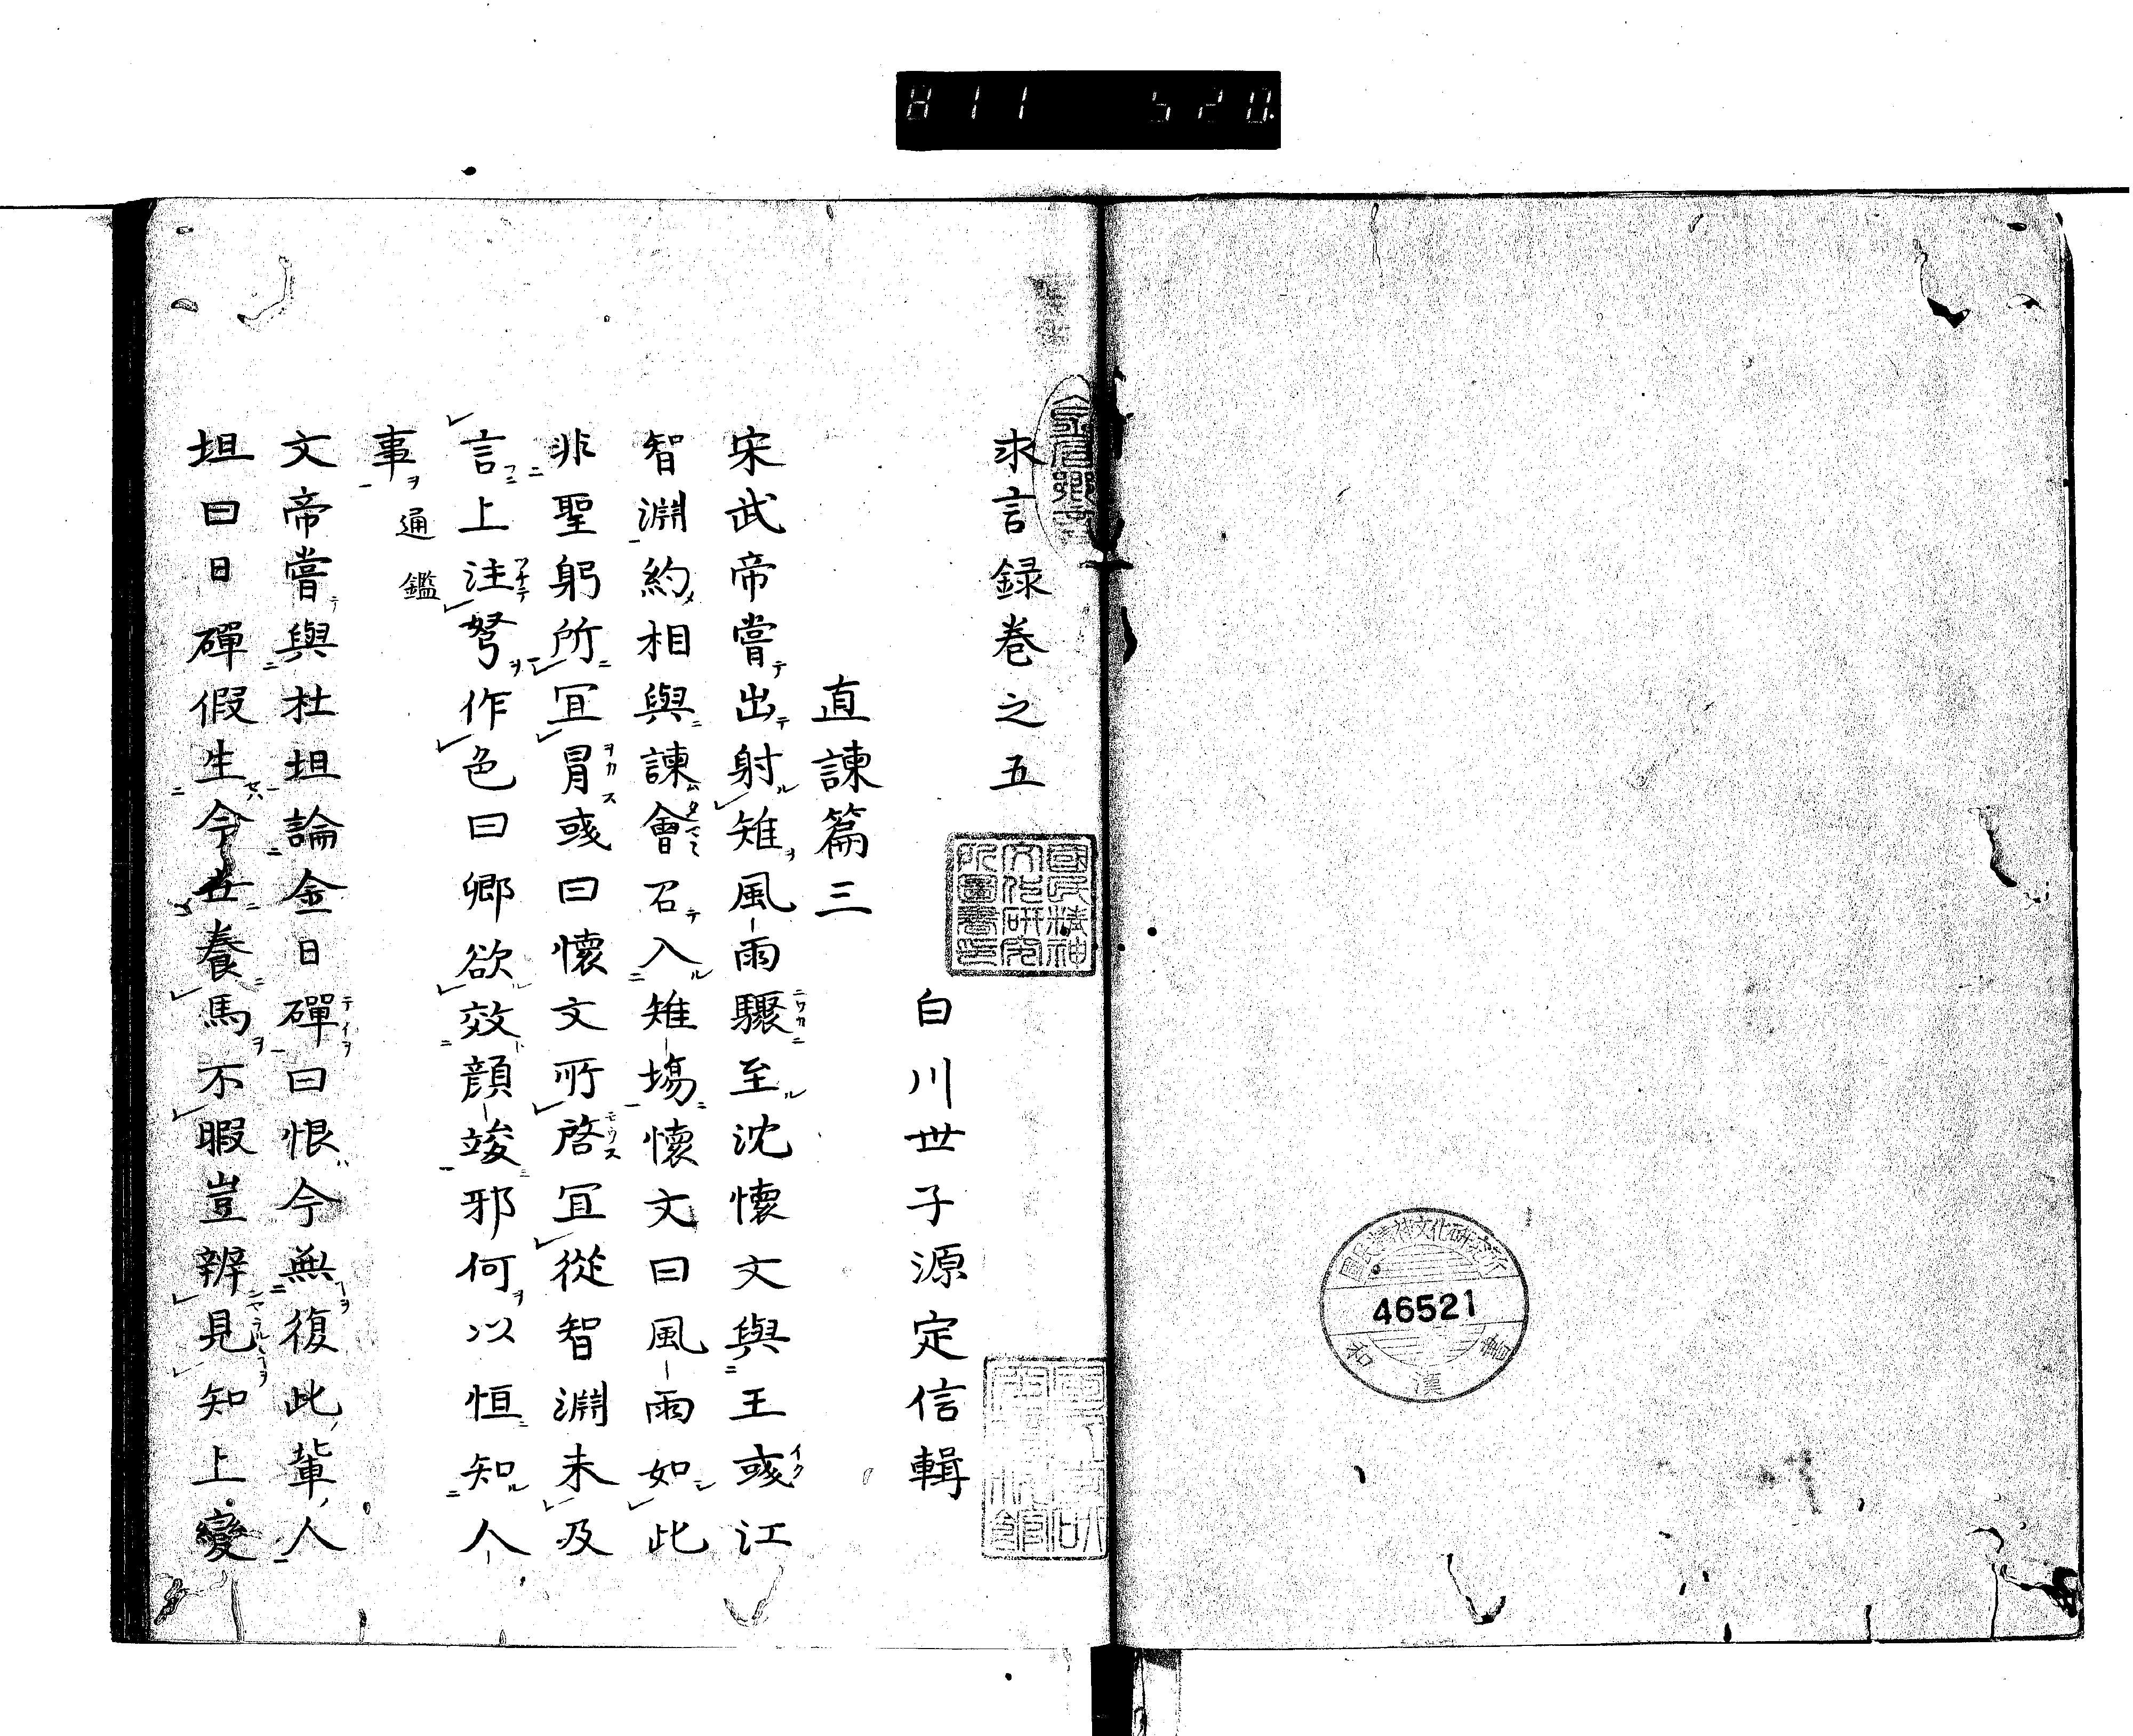 811 520.
求言録卷之五
白川世子源定信輯
直諫篇三
宋武帝嘗出射雉風雨驟至沈懷文與王彧江
智淵約相與諫會召入雉場懷文曰風雨如此
非聖躬所冝冒彧曰懷文所啓冝從智淵未及
言上注弩作色曰卿欲效顔竣邪何以恒知人
事通鑑
文帝嘗與杜坦論金日磾曰恨今無復此輩人
坦曰日磾假生今世養馬不暇豈辨見知上變
國民精神文化研究所圖書印
國民精神文化研究所
46521
和漢書